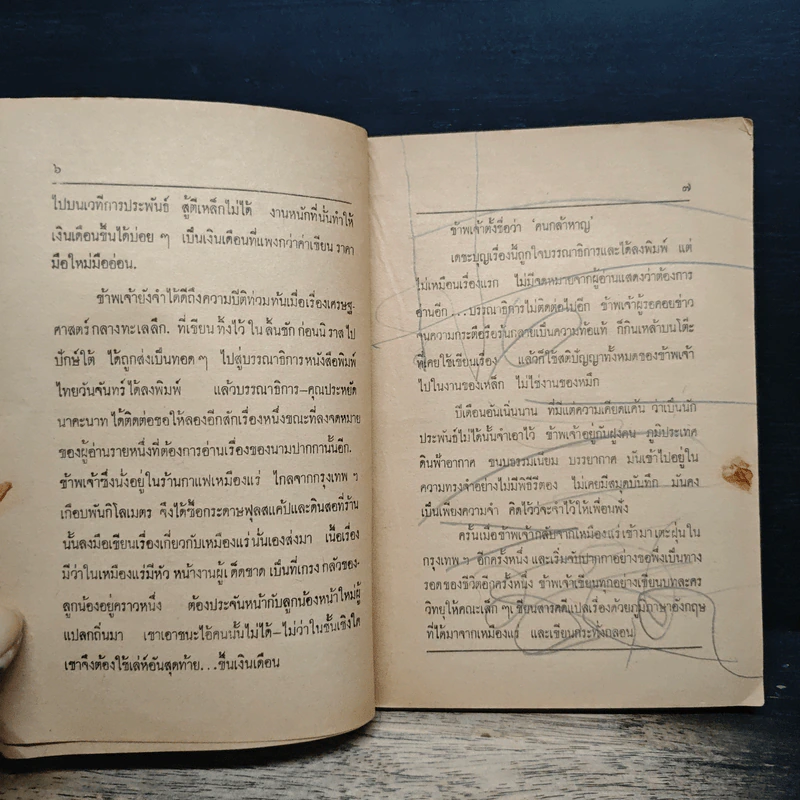 ๖
ไปบนเวทีการประพันธ์ สู้ตีเหล็กไม่ได้ งานหนักที่นั้นทำให้
เงินเดือนขึ้นได้บ่อย ๆ เป็นเงินเดือนที่แพงกว่าค่าเขียน ราคา
มือใหม่มืออ่อน.
ข้าพเจ้ายังจำได้ดีถึงความปีติท่วมท้นเมื่อเรื่องเศรษฐ-
ศาสตร์กลางทะเลลึก. ที่เขียน ทิ้งไว้ ใน ลิ้นชัก ก่อนนิ ราส ไป
ปักษ์ใต้ ได้ถูกส่งเป็นทอด ๆ ไปสู่บรรณาธิการ หนังสือพิมพ์
ไทยวันจันทร์ ได้ลงพิมพ์ แล้วบรรณาธิการ-คุณประหยัด
นาคะนาท ได้ติดต่อขอให้ลองอีกสักเรื่องหนึ่งขณะที่ลงจดหมาย
ของผู้อ่านรายหนึ่งที่ต้องการอ่านเรื่องของนามปากกานั้นอีก.
ข้าพเจ้าซึ่งนั่งอยู่ในร้านกาแฟเหมืองแร่ ไกลจากกรุงเทพ ฯ
เกือบพันกิโลเมตร จึงได้ซื้อกระดาษฟุลสแค้ปและดินสอที่ร้าน
นั้นลงมือเขียนเรื่องเกี่ยวกับเหมืองแร่นั่นเองส่งมา เนื้อเรื่อง
มีว่าในเหมืองแร่มีหัว หน้างานผู้เ ด็ดขาด เป็นที่เกรง กลัวของ-
ลูกน้องอยู่คราวหนึ่ง ต้องประจันหน้ากับลูกน้องหน้าใหม่ผู้
แปลกถิ่นมา เขาเอาชนะไอ้คนนั้นไม่ได้-ไม่ว่าในชั้นเชิงใด
เขาจึงต้องใช้เล่ห์อันสุดท้าย...ขึ้นเงินเดือน
๗
ข้าพเจ้าตั้งชื่อว่า 'คนกล้าหาญ'
เดชะบุญเรื่องนี้ถูกใจบรรณาธิการและได้ลงพิมพ์ แต่
ไม่เหมือนเรื่องแรก ไม่มีจดหมายจากผู้อ่านแสดงว่าต้องการ
อ่านอีก...บรรณาธิการไม่ติดต่อไปอีก ข้าพเจ้าผู้รอคอยข่าว
จนความกระตือรือร้นกลายเป็นความท้อแท้ ก็กินเหล้าบนโต๊ะ
ที่เคยใช้เขียนเรื่อง แล้วก็ใช้สติปัญญาทั้งหมดของข้าพเจ้า
ไปในงานของเหล็ก ไม่ใช่งานของหมึก
ปีเดือนอันเนิ่นนาน ที่มีแต่ความเคียดแค้น ว่าเป็นนัก
ประพันธ์ไม่ได้นั้นจำเอาไว้ ข้าพเจ้าอยู่กับฝูงคน ภูมิประเทศ
ดินฟ้าอากาศ ขนบธรรมเนียม บรรยากาศ มันเข้าไปอยู่ใน
ความทรงจำอย่างไม่มีพิธีรีตอง ไม่เคยมีสมุดบันทึก มันคง
เป็นเพียงความจำ คิดไว้ว่าจะจำไว้ให้เพื่อนฟัง
ครั้นเมื่อข้าพเจ้ากลับจากเหมืองแร่ เข้ามาเตะฝุ่นใน
กรุงเทพ ฯ อีกครั้งหนึ่ง และเริ่มจับปากกาอย่างขอพึ่งเป็นทาง
รอดของชีวิตอีกครั้งหนึ่ง ข้าพเจ้าเขียนทุกอย่างเขียนบทละคร
วิทยุให้คณะเล็ก ๆเขียนสารคดีแปลเรื่องด้วยภูมิภาษาอังกฤษ
ที่ได้มาจากเหมืองแร่ และเขียนกระทั่งกลอน